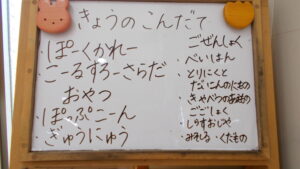 きょうの こんだて
・ぽーくかれー
・こーるすろーさらだ
おやつ
・ぽっぷこーん
・ぎゅうにゅう
ごぜんしょく
・べいはん
・とりにくと
だいこんのにもの
・きゃべつの
ごごしょく
・しらすおじや
・みそしる・くだもの